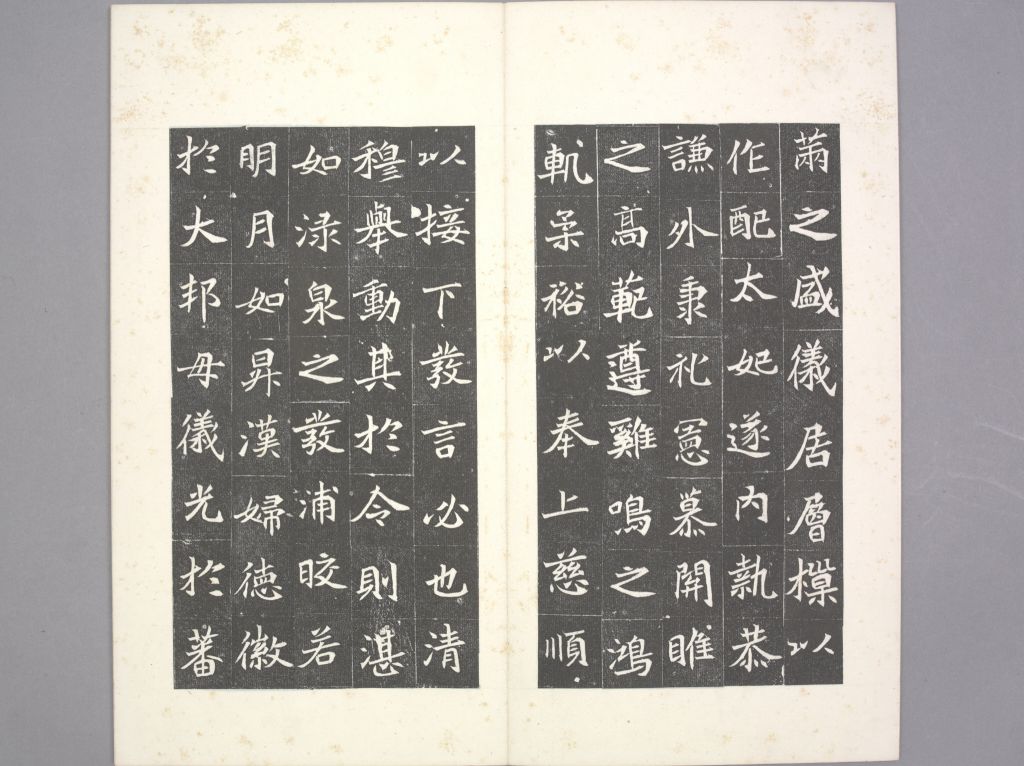 肅之盛儀居層橖以
作配太妃遂内執恭
謙外秉礼憲慕關睢
之高範遵雞鳴之鴻
軌柔裕以奉上慈順
以接下發言必也清
穆舉動其於令則湛
如渌泉之發浦晈若
明月如昇漢婦徳徽
於大邦母儀光於蕃